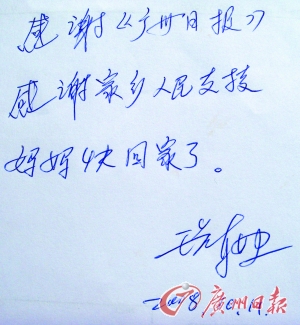 感谢《广州日报》
感谢家乡人民支持
妈妈快回家了。
2008
廣州日报